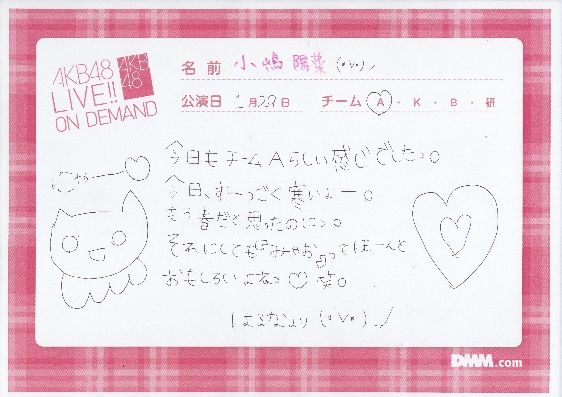 AKB48
LIVE!!
ON DEMAND
AKB
48
名前 小嶋陽菜 (・∨・)ノ
公演日 1月29日 チーム A・K・B・研
今日もチームAらしい感じでしたっ。
にゃー
今日、すーっごく寒いよー。
もう春だと思ったのにっ。
それにしても
ってほーんと
おもしろいよねっ♡笑。
はるなより (・∨・)ノ
DMM.com